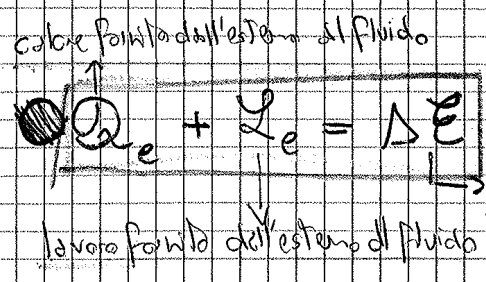 calore fornito dall'esterno al fluido
Q_e + L_e = Δ E
lavoro fornito dall'esterno al fluido